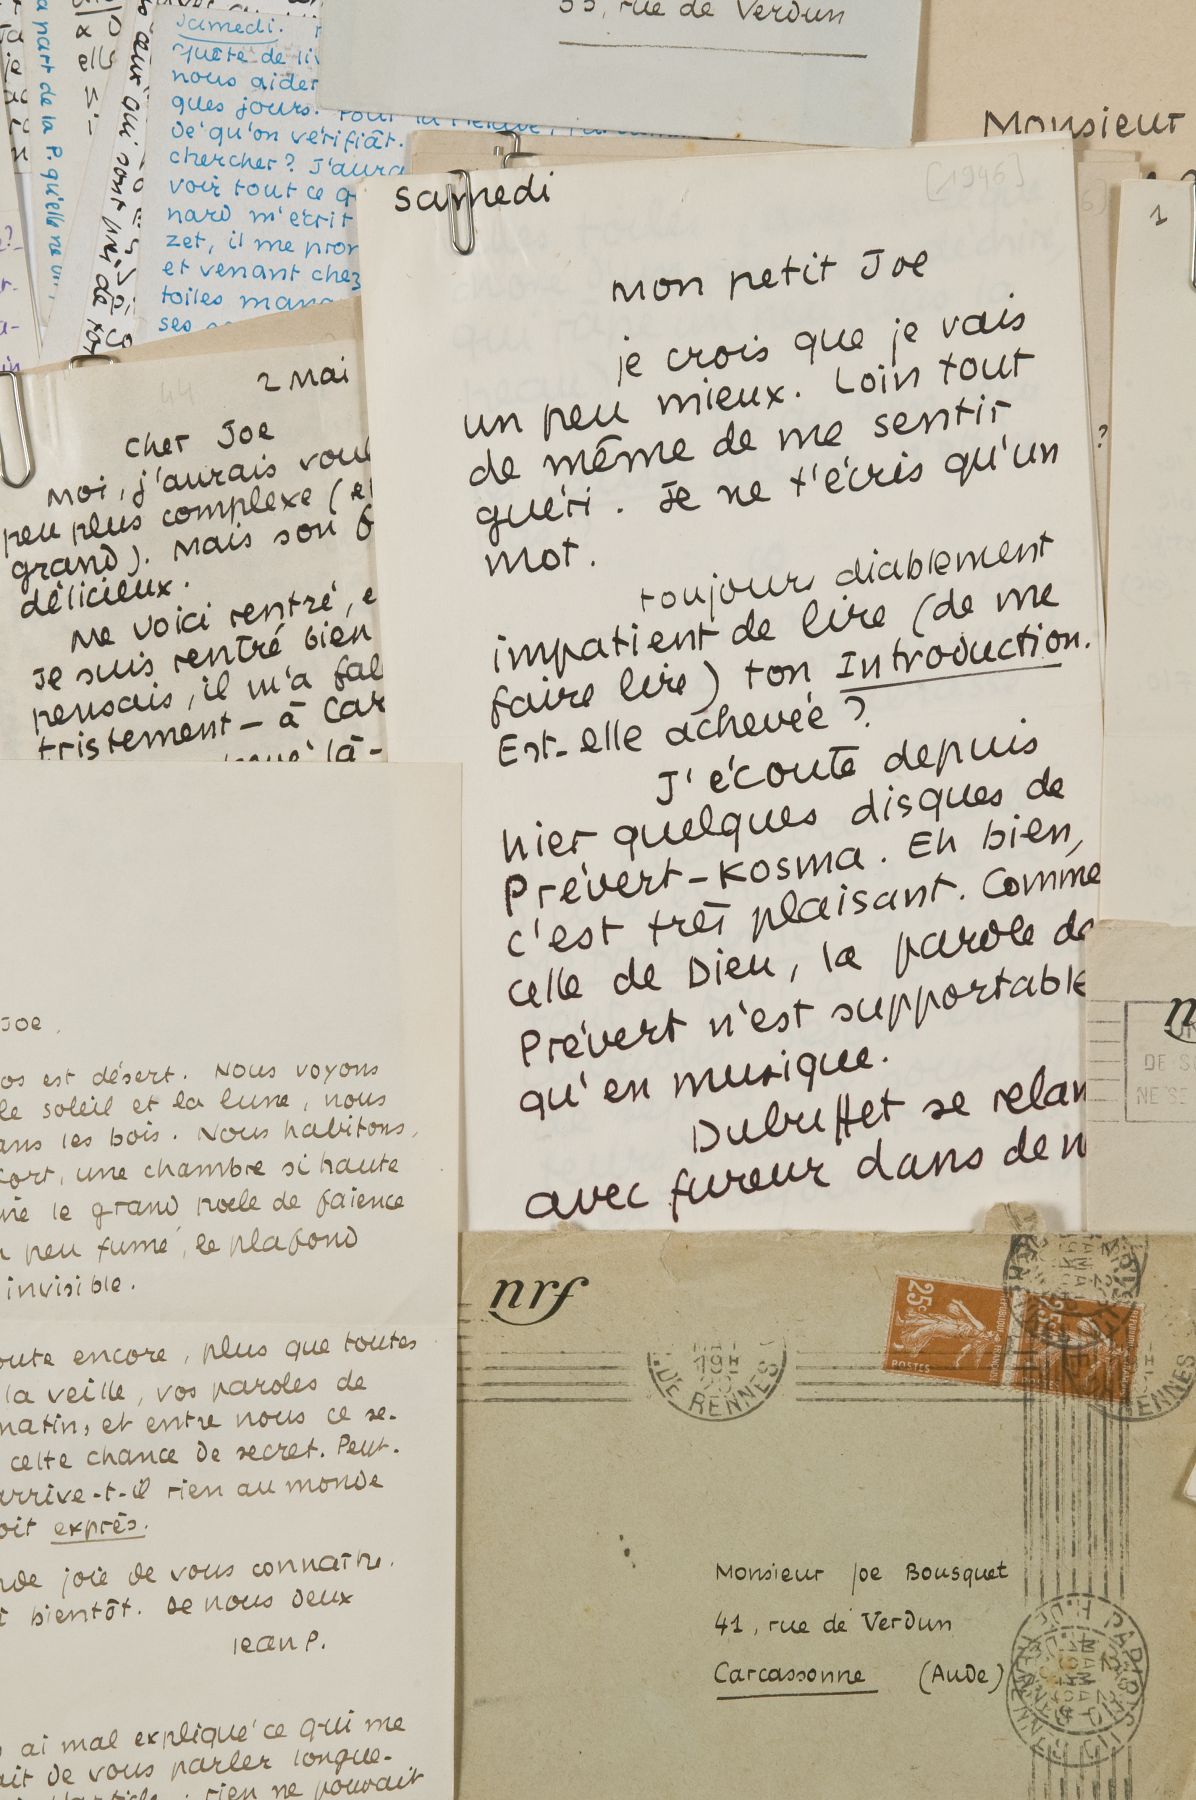 Samedi.
Quête de
nous aider
ques jours.
De' qu'on vérifiât.
chercher? J'aura
voir tout ce q
nard m'écrit
zet, il me pro
et venant chez
toiles
ses
a part de la P. qu'elle ne
55, rue de Verdun
Monsieur
samedi
[1946]
Mon petit Joe
je crois que je vais
un peu mieux. Loin tout
de même de me sentir
guéri. Je ne t'écris qu'un
mot.
toujours diablement
impatient de lire (de me
faire lire) ton Introduction.
Est-elle achevée?
J'écoute depuis
hier quelques disques de
Prévert-Kosma. Eh bien,
c'est très plaisant. Comme
celle de Dieu, la parole de
Prévert n'est supportable
qu'en musique.
Dubuffet se relan
avec fureur dans de n
1
44
2 Mai
Cher Joe
Moi, j'aurais voul
peu plus complexe (e
grand). Mais son
délicieux.
Me voici rentré, e
Je suis rentré bien
pensais, il m'a fal
tristement - à Car
là-
Joe,
os est désert. Nous voyons
le soleil et la lune, nous
ans les bois. Nous habitons,
fort, une chambre si haute
le grand poele de faïence
peu fumé, le plafond
invisible.
oute encore, plus que toutes
la veille, vos paroles de
matin, et entre nous ce se-
cette chance de secret. Peut-
arrive-t-il rien au monde
oit exprès.
nde joie de vous connaître.
bientôt. De nous deux
Jean P.
ai mal expliqué ce qui me
ait de vous parler longue-
rien ne pouvait
nrf
25c
POSTES
DE RENNES
Monsieur Joe Bousquet
41, rue de Verdun
Carcassonne (Aude)